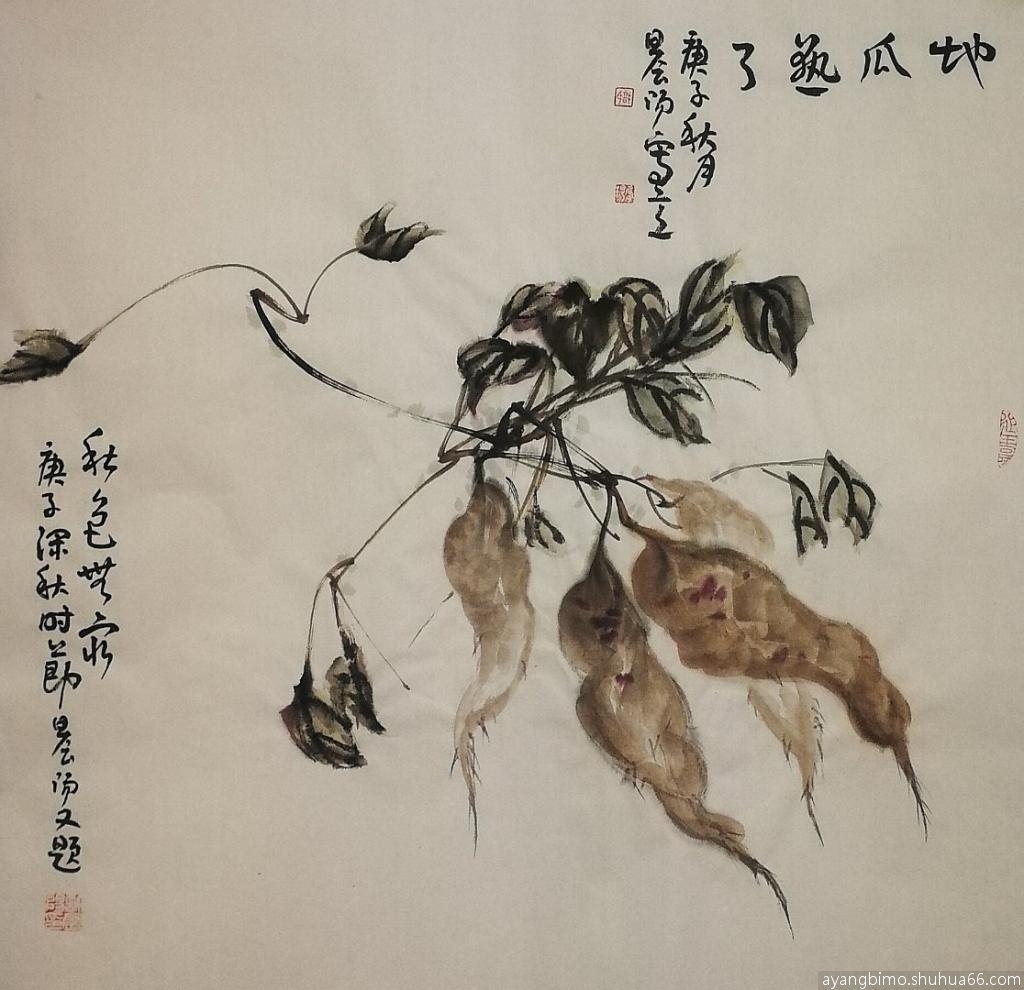 地瓜熟了
庚子秋月
晨阳写
秋色無
庚子深秋时节晨阳又题
ayangbimo.shuhua66.com